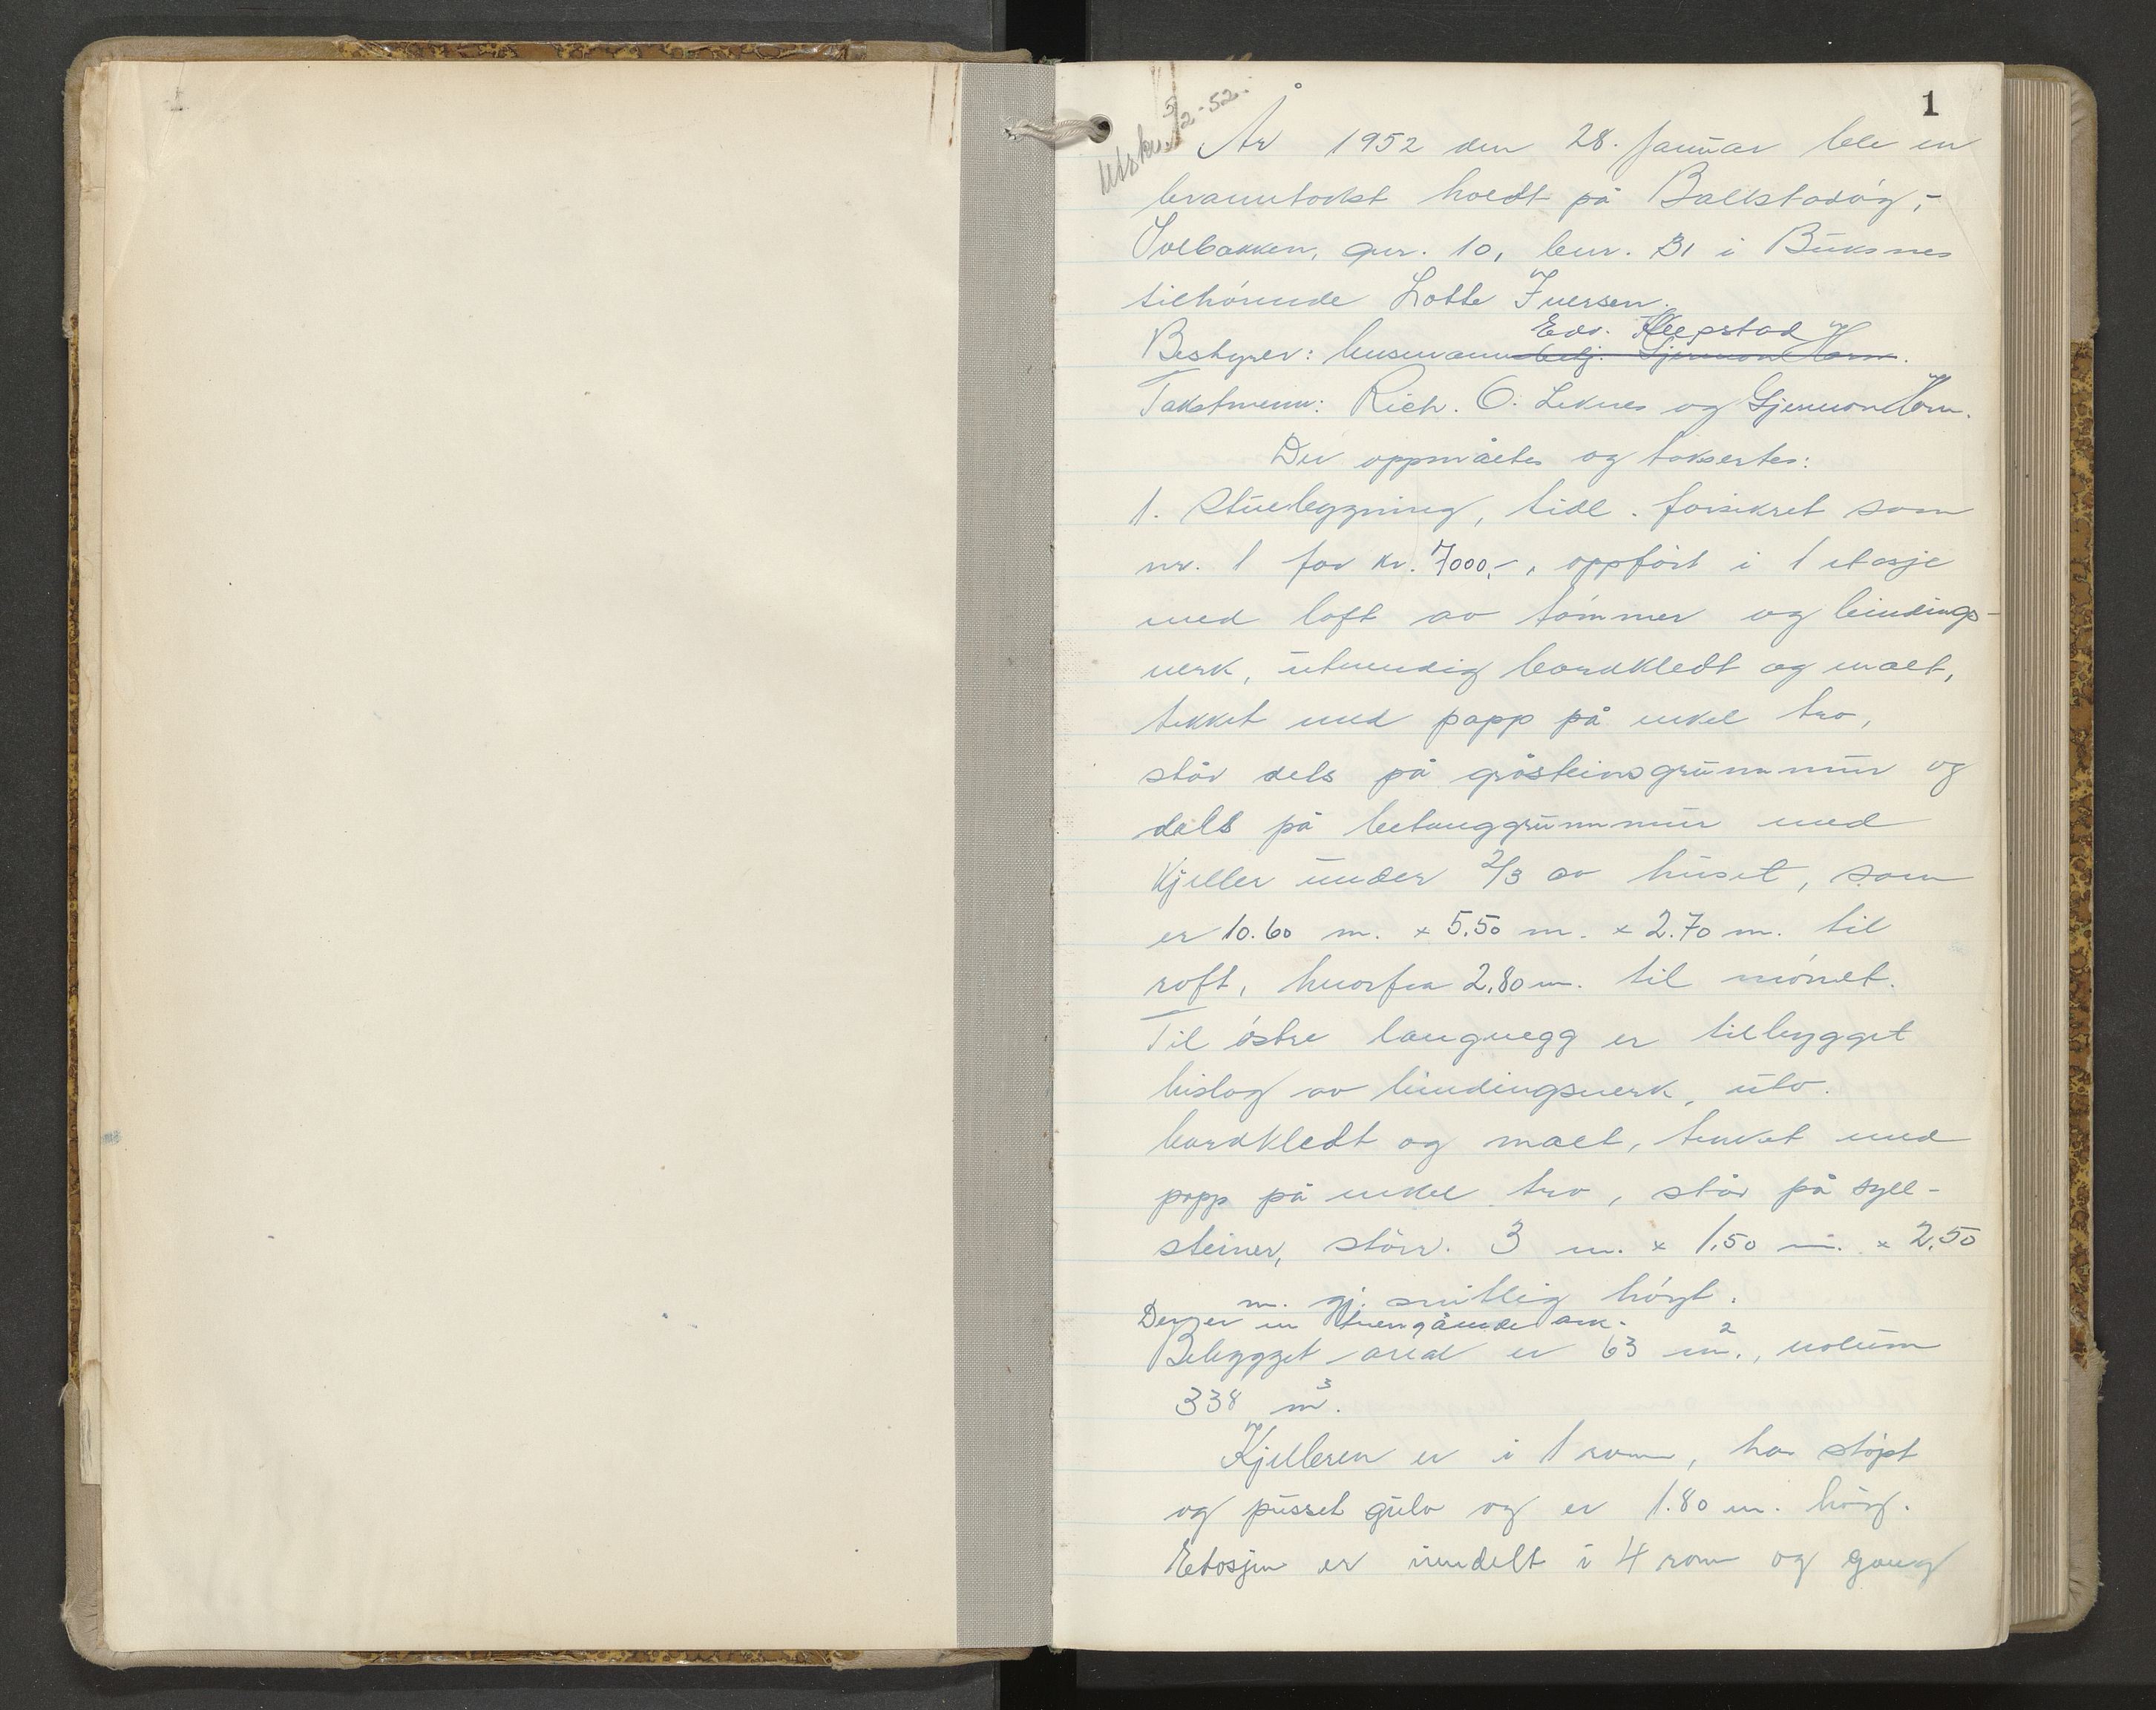 1
Utskr. 5/2-52.
År 1952 den 28. januar ble en
branntakst holdt på Ballstadøy,-
Solbakken, gnr. 10, bnr. 31 i Buksnes
tilhørende Lotte Iversen.
Edv. Klepstad
Bestyrer: lensmannsbetj. Gjermon Horn.
Takstmenn: Rich. O. Leknes og Gjermon Horn.
Der oppmåltes og taksertes:
1. Stuebygning, tidl. forsikret som
nr. 1 for kr. 7000,-, oppført i 1 etasje
med loft av tømmer og bindings-
verk, utvendig bordkledt og malt,
tekket med papp på enkel tro,
står dels på gråsteinsgrunnmur og
dels på betonggrunnmur med
kjeller under 2/3 av huset, som
er 10.60 m. x 5.50 m. x 2.70 m. til
roft, hvorfra 2,80 m. til mønet.
Til østre langvegg er tilbygget
bislag av bindingsverk, utv.
bordkledt og malt, tekket med
papp på enkel tro, står på syll-
steiner, størr. 3 m. x 1,50 m. x 2,50
m. gj.snittlig høyt.
Der er en tverrgående ark.
Bebygget areal er 63 m²., volum
338 m³.
Kjelleren er i 1 rom, har støpt
og pusset gulv og er 1.80 m. høy.
Etasjen er inndelt i 4 rom og gang